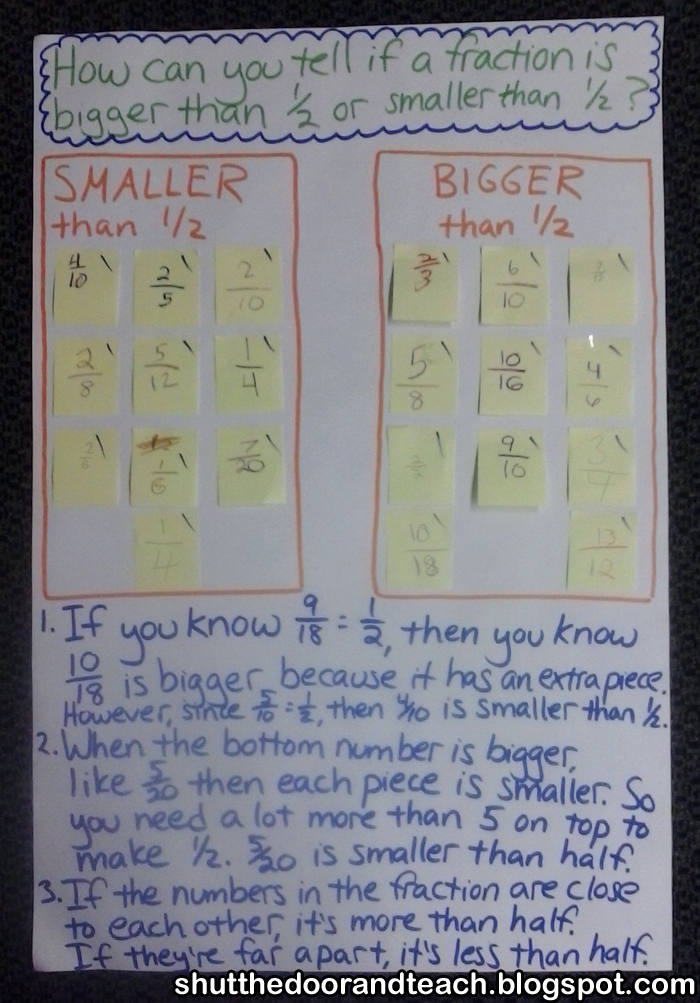 How can you tell if a fraction is
bigger than 1/2 or smaller than 1/2?
SMALLER
than 1/2
4/10 2/5 2/10
2/8 5/12 1/4
1/6 7/20
1/4
BIGGER
than 1/2
2/3 6/10
5/8 10/16 4/6
9/10 3/4
10/18 13/12
1. If you know 9/18 = 1/2, then you know
10/18 is bigger, because it has an extra piece.
However, since 5/10 = 1/2, then 4/10 is smaller than 1/2.
2. When the bottom number is bigger,
like 5/20 then each piece is smaller. So
you need a lot more than 5 on top to
make 1/2. 5/20 is smaller than half.
3. If the numbers in the fraction are close
to each other, it's more than half.
If they're far apart, it's less than half.
shutthedoorandteach.blogspot.com